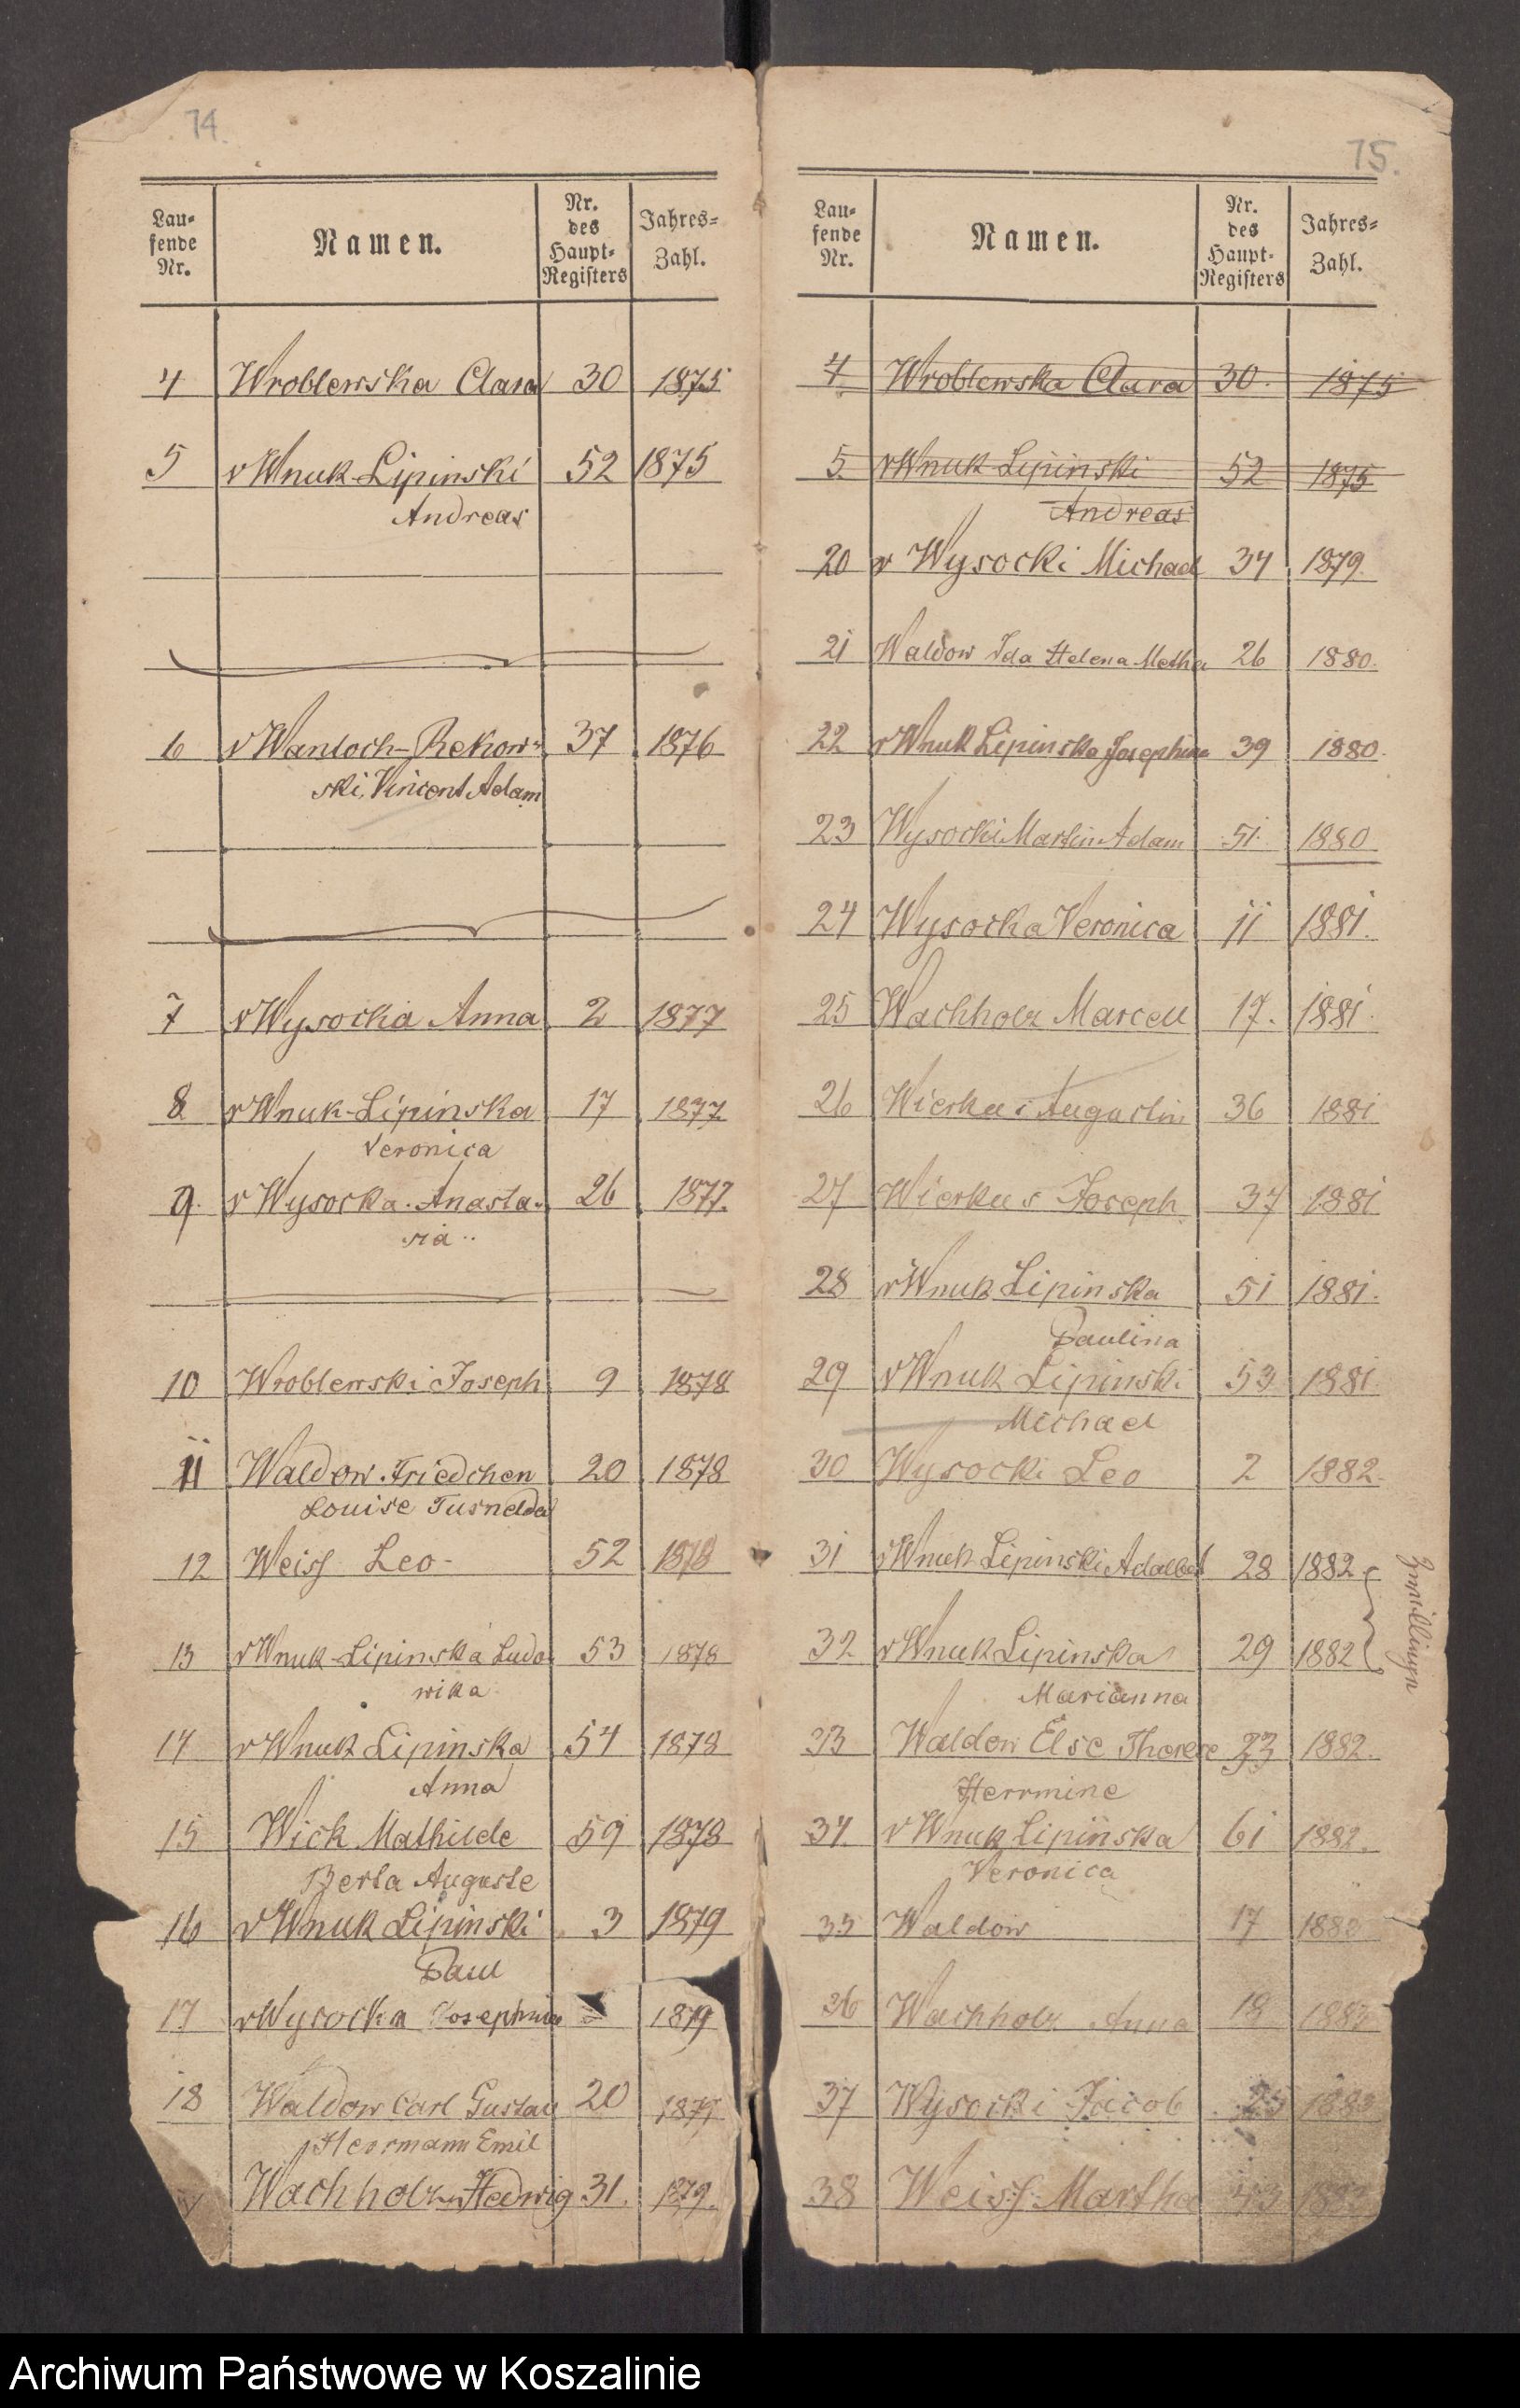 74.
Lau-
fende
Nr.
Namen.
Nr.
des
Haupt-
Registers
Jahres-
Zahl.
4 Wroblewska Clara 30 1875
5 v Wnuk-Lipinski 52 1875
Andreas
6 v Wantoch-Rekow-
37 1876
ski, Vincent Adam
7 v Wysocka Anna 2 1877
8 v Wnuk-Lipinska 17 1877
Veronica
9. v Wysocka Anasta- 26 1877.
sia
10 Wroblewski Joseph 9 1878
11 Waldow Friedchen 20 1878
Louise Tusnelda
12 Weiss Leo- 52 1878
13 v Wnuk-Lipinska Ludo- 53 1878
wika
14 v Wnuk Lipinska 54 1878
Anna
15 Wick Mathilde 59 1878
Berta Auguste
16 v Wnuk Lipinski 3 1879
Paul
17 v Wysocka Josephine 1879
18 Waldow Carl Gustav 20 1879
Herrmann Emil
Wachholz Hedwig 31. 1879.
75.
Lau-
fende
Nr.
Namen.
Nr.
des
Haupt-
Registers
Jahres-
Zahl.
4 Wroblewska Clara 30. 1875
5 v Wnuk-Lipinski 52 1875
Andreas
20 v Wysocki Michael 34 1879.
21 Waldow Ida Helena Metha 26 1880.
22 v Wnuk Lipinska Josephine 39 1880.
23 Wysocki Martin Adam 51. 1880
24 Wysocka Veronica 11 1881.
25 Wachholz Marcell 17. 1881.
26 Wierkus Augustin 36 1881
27 Wierkus Joseph 37 1881
28 v Wnuk Lipinska 51 1881.
Paulina
29 v Wnuk Lipinski 53 1881.
Michael
30 Wysocki Leo 2 1882.
31 v Wnuk Lipinski Adalbert 28 1882
32. v Wnuk Lipinska 29 1882
Zwillinge
Marianna
33 Waldow Else Therese 33 1882.
Herrmine
34. v Wnuk Lipinska 61 1882.
Veronica
35 Waldow 17 1883
36 Wachholz Anna 18 1883
37 Wysocki Jacob 1883
38 Weiss Martha 43 1883
Archiwum Państwowe w Koszalinie